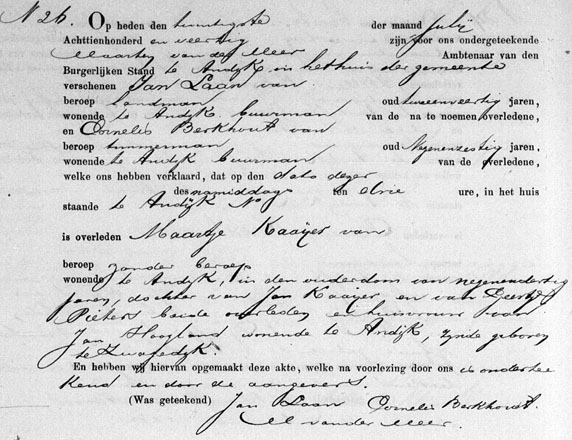 N 26. Op heden den twintigste der maand Julij
Achttienhonderd en veertig zijn voor ons ondergeteekende
Maarten van der Meer Ambtenaar van den
Burgerlijken Stand te Andijk in het huis der gemeente
verschenen Jan Laan van
beroep landman oud tweeenveertig jaren,
wonende te Andijk buurman van de na te noemen overledene,
en Cornelis Berkhout van
beroep timmerman oud Negenenzestig jaren,
wonende te Andijk buurman van de overledene,
welke ons hebben verklaard, dat op den dato dezer
des namiddags ten drie ure, in het huis
staande te Andijk No
is overleden Maartje Kaaijer van
beroep zonder beroep
wonende te Andijk, in den ouderdom van negenendertig
jaren, dochter van Jan Kaaijer en van Geertje
Pieters beide overleden en huisvrouw van
Jan Hoogland wonende te Andijk, zynde geboren
te Twafedijk.
En hebben wij hiervan opgemaakt deze akte, welke na voorlezing door ons is onderthee
kend en door de aangevers.
(Was geteekend) Jan Laan Cornelis Berkhout.
M van der Meer.